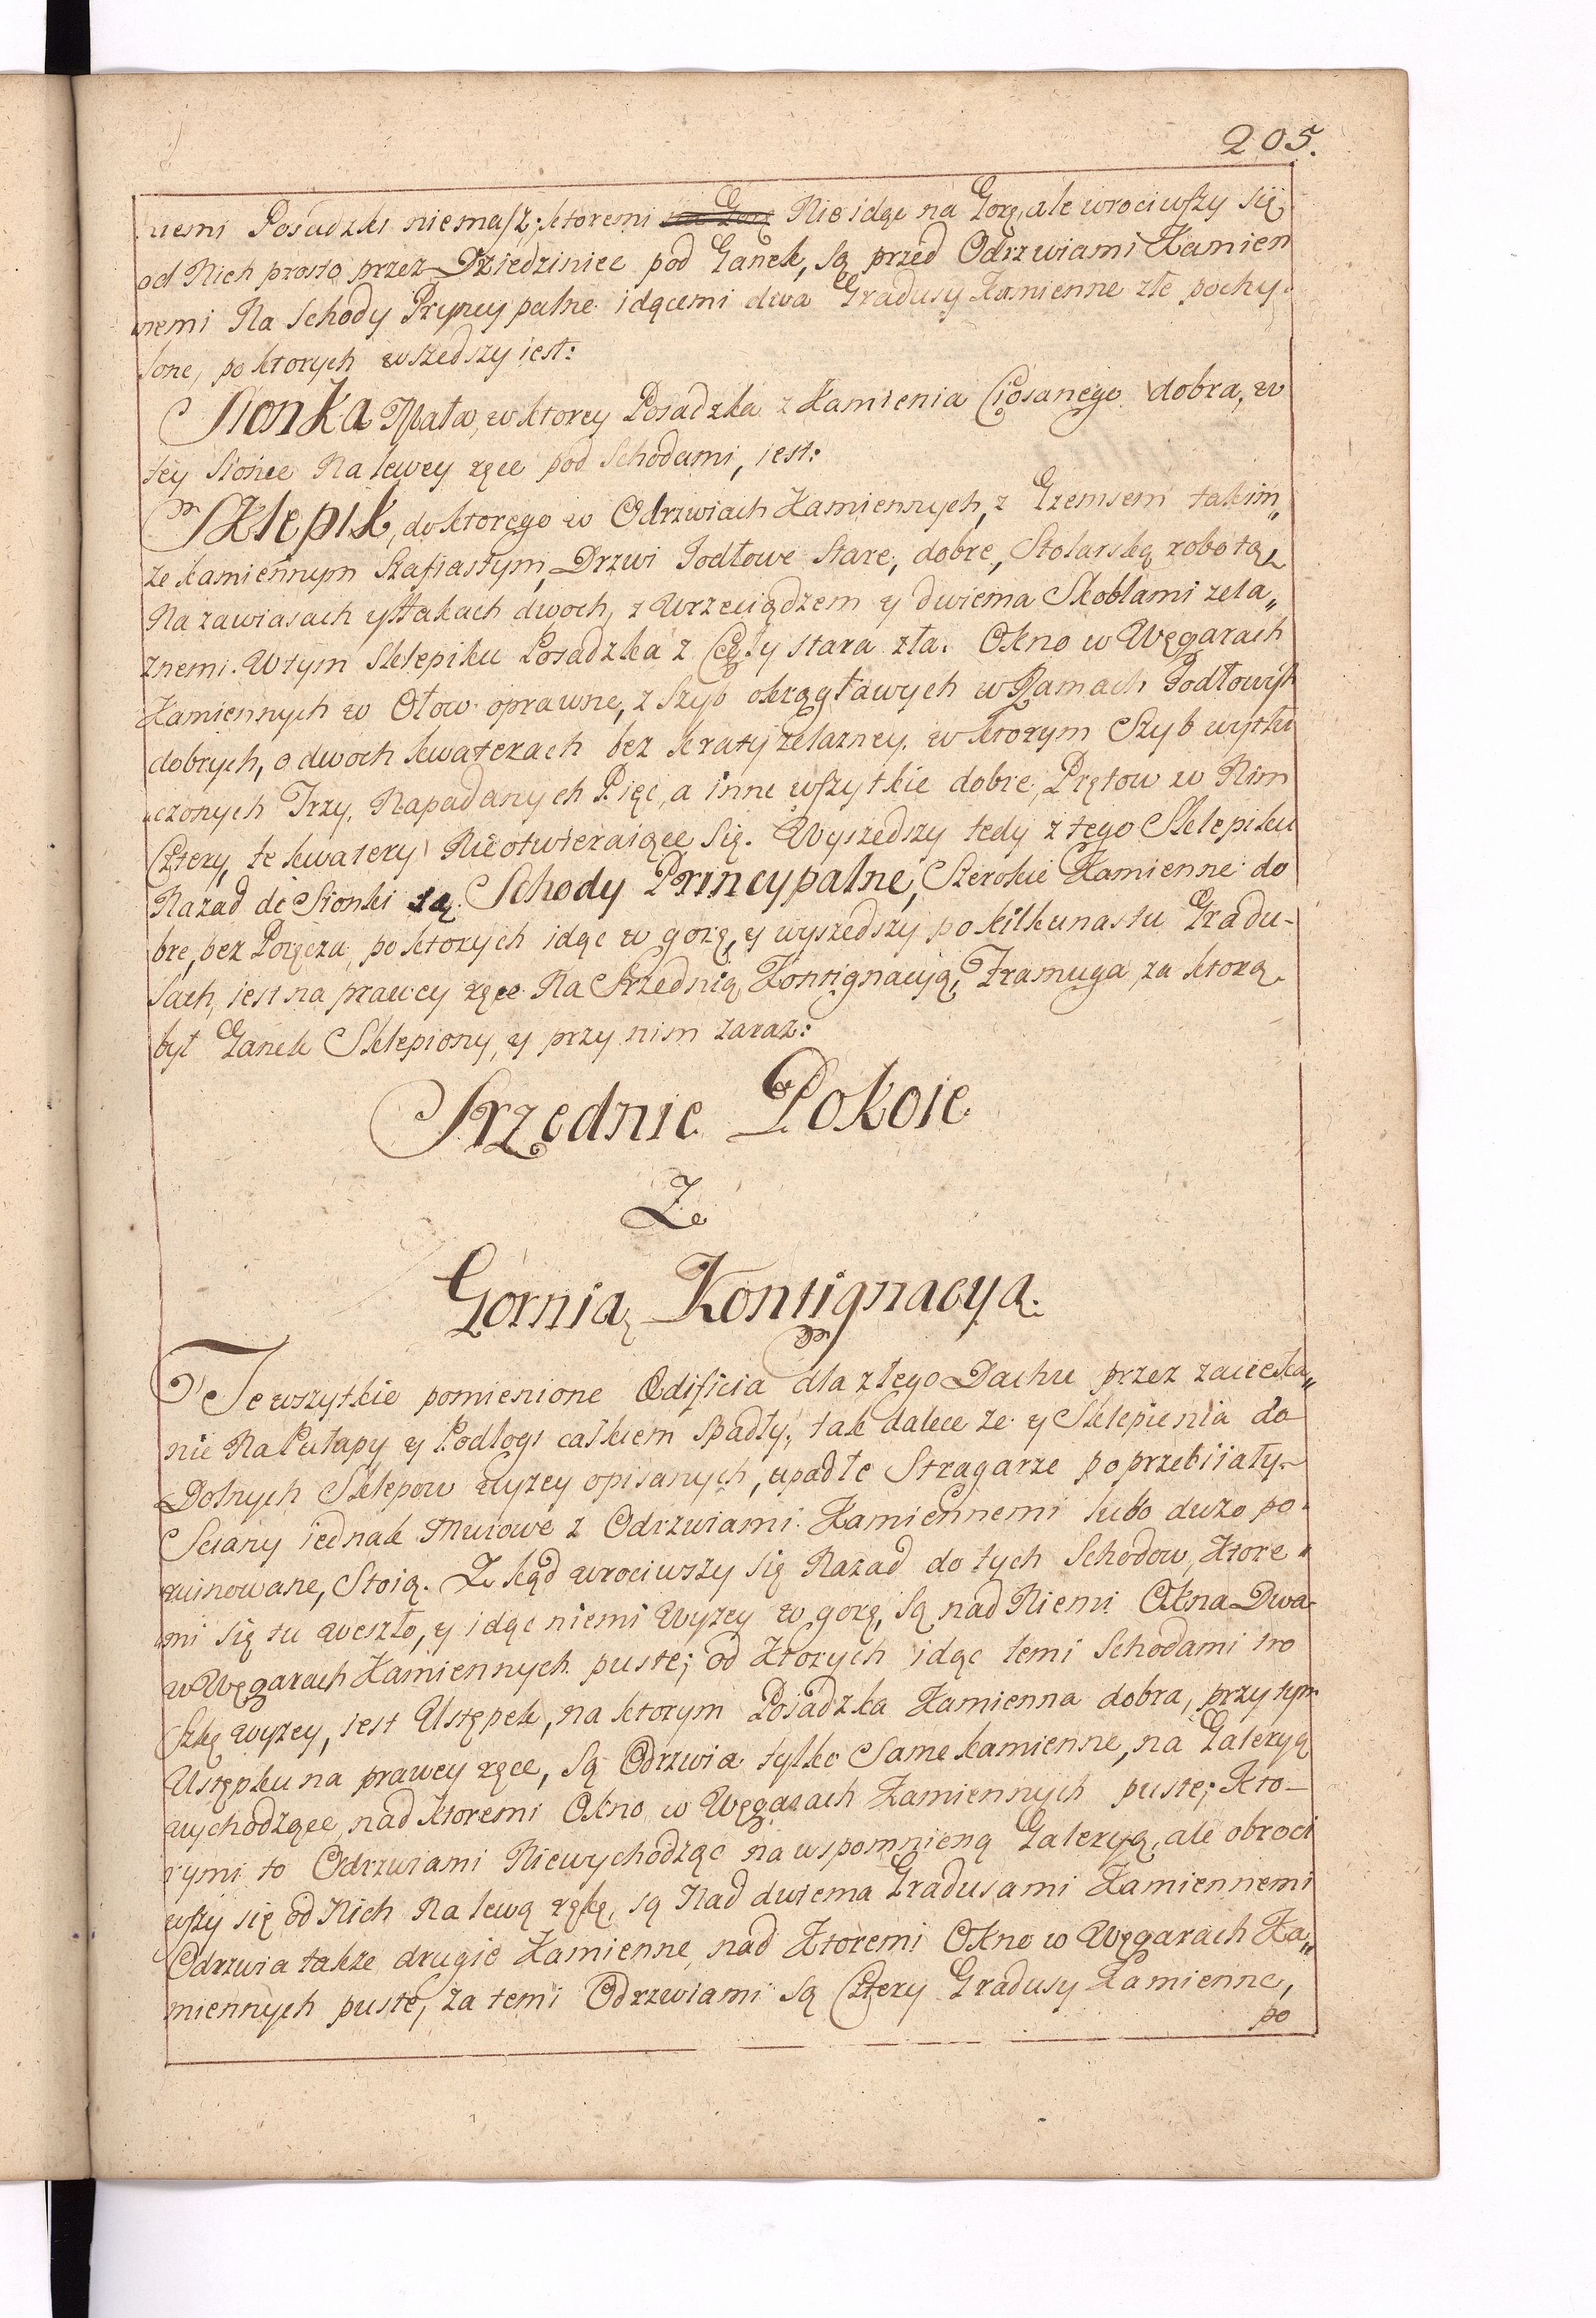 205.
nemi Posadzki niemasz; ktoremi na Gorę Nie idąc na Gorę, ale wrociwszy się
od Nich prosto przez Dziedziniec pod Ganek, są przed Odrzwiami Kamien
nemi Na Schody Pryncypalne idącemi dwa Gradusy Kamienne złe pochy-
lone, po ktorych wszedszy iest:
Sionka Mała, w ktorey Posadzka z Kamienia Ciosanego dobra, w
tey Sionce Na lewey ręce pod Schodami, iest:
Sklepik, do ktorego w Odrzwiach Kamiennych, z Gzemsem takim„
ze kamiennym Szafiastym, Drzwi Jodłowe Stare, dobre, Stolarską robotą,
Na zawiasach y Hakach dwoch, z Wrzeciądzem y dwiema Skoblami zela„
znemi. W tym Sklepiku Posadzka z Cegły stara zła. Okno w Węgarach
Kamiennych w Ołow oprawne, z Szyb okrągławych w Ramach Jodłowych
dobrych, o dwoch kwaterach bez kraty zelazney, w ktorym Szyb wytłu
czonych Trzy, Napadanych Pięc, a inne wszytkie dobre, Prętow w Nim
Cztery, te kwatery Nieotwieraiące Się. Wyszedszy tedy z tego Sklepiku
Nazad do Sionki są Schody Princypalne, Szerokie Kamienne do
bre, bez Poręcza, po ktorych idąc w gorę, y wyszedszy po kilkunastu Gradu-
sach, iest na prawey ręce Na Srzednią Kontignacyją, Framuga, za ktorą
był Ganek Sklepiony, y przy nim zaraz:
Srzednie Pokoie
Z
Gornią Kontignacyą.
Te wszytkie pomienione Edificia dla złego Dachu przez zacieka„
nie Na Pułapy y Podłogi całkiem Spadły, tak dalece ze y Sklepienia do
Dolnych Sklepow wyzey opisanych, upadłe Stragarze poprzebiiały.
Sciany iednak Murowe z Odrzwiami Kamiennemi lubo duzo po-
ruinowane, Stoią. Z kąd wrociwszy się Nazad do tych Schodow, Ktore„
mi się tu weszło, y idąc niemi Wyzey w gorę, są nad Niemi Okna Dwa
w Węgarach Kamiennych puste; od Ktorych idąc temi Schodami tro
Szkę wyzey, iest Ustępek, na ktorym Posadzka Kamienna dobra, przy tym
Ustępku na prawey ręce, są Odrzwia tylko Same kamienne, na Galeryą
wychodzące, nad ktoremi Okno w Węgarach Kamiennych puste; Kto-
rymi to Odrzwiami Niewychodząc na wspomnieną Galeryą, ale obroci
wszy się od Nich Na lewą rękę, są Nad dwiema Gradusami Kamiennemi
Odrzwia także drugie Kamienne, nad Ktoremi Okno w Węgarach Ka„
miennych puste, za temi Odrzwiami są Cztery Gradusy Kamienne,
po